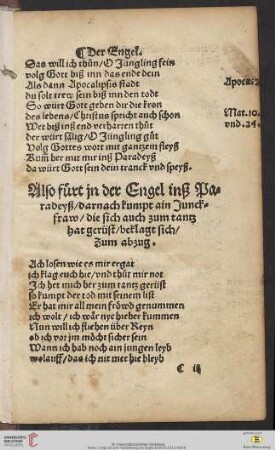 ¶ Der Engel.
Das will ich thůn/ O Jüngling fein
volg Gott biß inn das ende dein
Als dann Apocalipsis stadt
du solt trew sein biß inn den todt
So würt Gott geben dir die kron
des lebens/ Christus spricht auch schon
Wer biß inß end verharren thůt
der würt sälig/ O Jüngling gůt
Volg Gottes wort mit gantzem fleyß
Kum her mit mir inß Paradeyß
da würt Gott sein dein tranck vnd speyß.
Apoca: 2
Mat. 10.
vnd. 24.
Also fürt jn der Engel inß Pa-
radeyß/ darnach kumpt ain Junck-
fraw/ die sich auch zum tantz
hat gerüst/ beklagt sich/
Zum abzug.
Ach losen wie es mir ergat
ich klag euch hie/ vnd thůt mir not
Jch het mich her zum tantz gerüst
so kumpt der tod mit seinem list
Er hat mir all mein fröwd genummen
ich wolt/ ich wär nye hieher kummen
Nun will ich fliehen über Reyn
ob ich vor jm möcht sicher sein
Wann ich hab noch ain jungen leyb
wolauff/ das ich nit mer hie bleyb
C iij